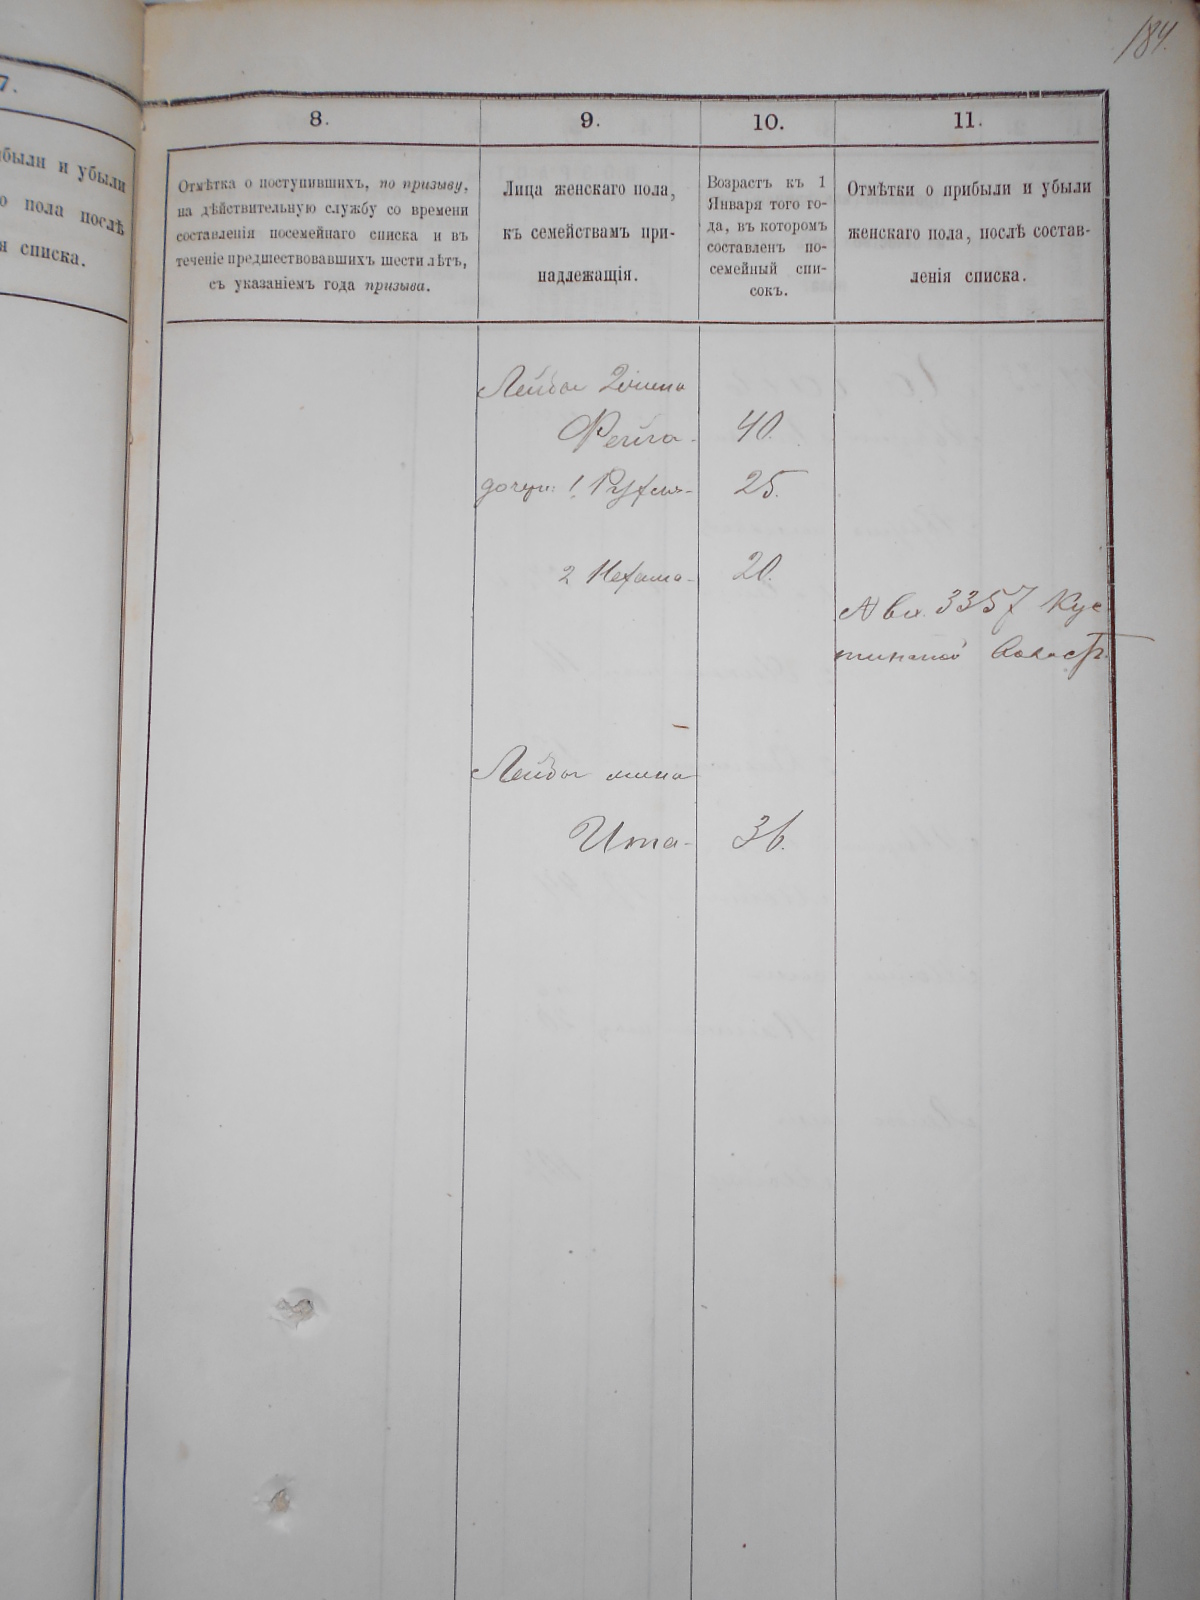 184.
7.
были и убыли
о пола послѣ
я списка.
8.
9.
10.
11.
Отмѣтка о поступившихъ, по призыву,
на дѣйствительную службу со времени
составленія посемейнаго списка и въ
теченіе предшествовавшихъ шести лѣтъ,
съ указаніемъ года призыва.
Лица женскаго пола,
къ семействамъ при-
надлежащія.
Возрастъ къ 1
Января того го-
да, въ которомъ
составленъ по-
семейный спи-
сокъ.
Отмѣтки о прибыли и убыли
женскаго пола, послѣ состав-
ленія списка.
Лейбы 2 жена
Фейга - 40.
дочери: 1. Рухля - 25.
2 Нехама - 20.
3357
Лейбы жена
Ита - 36.